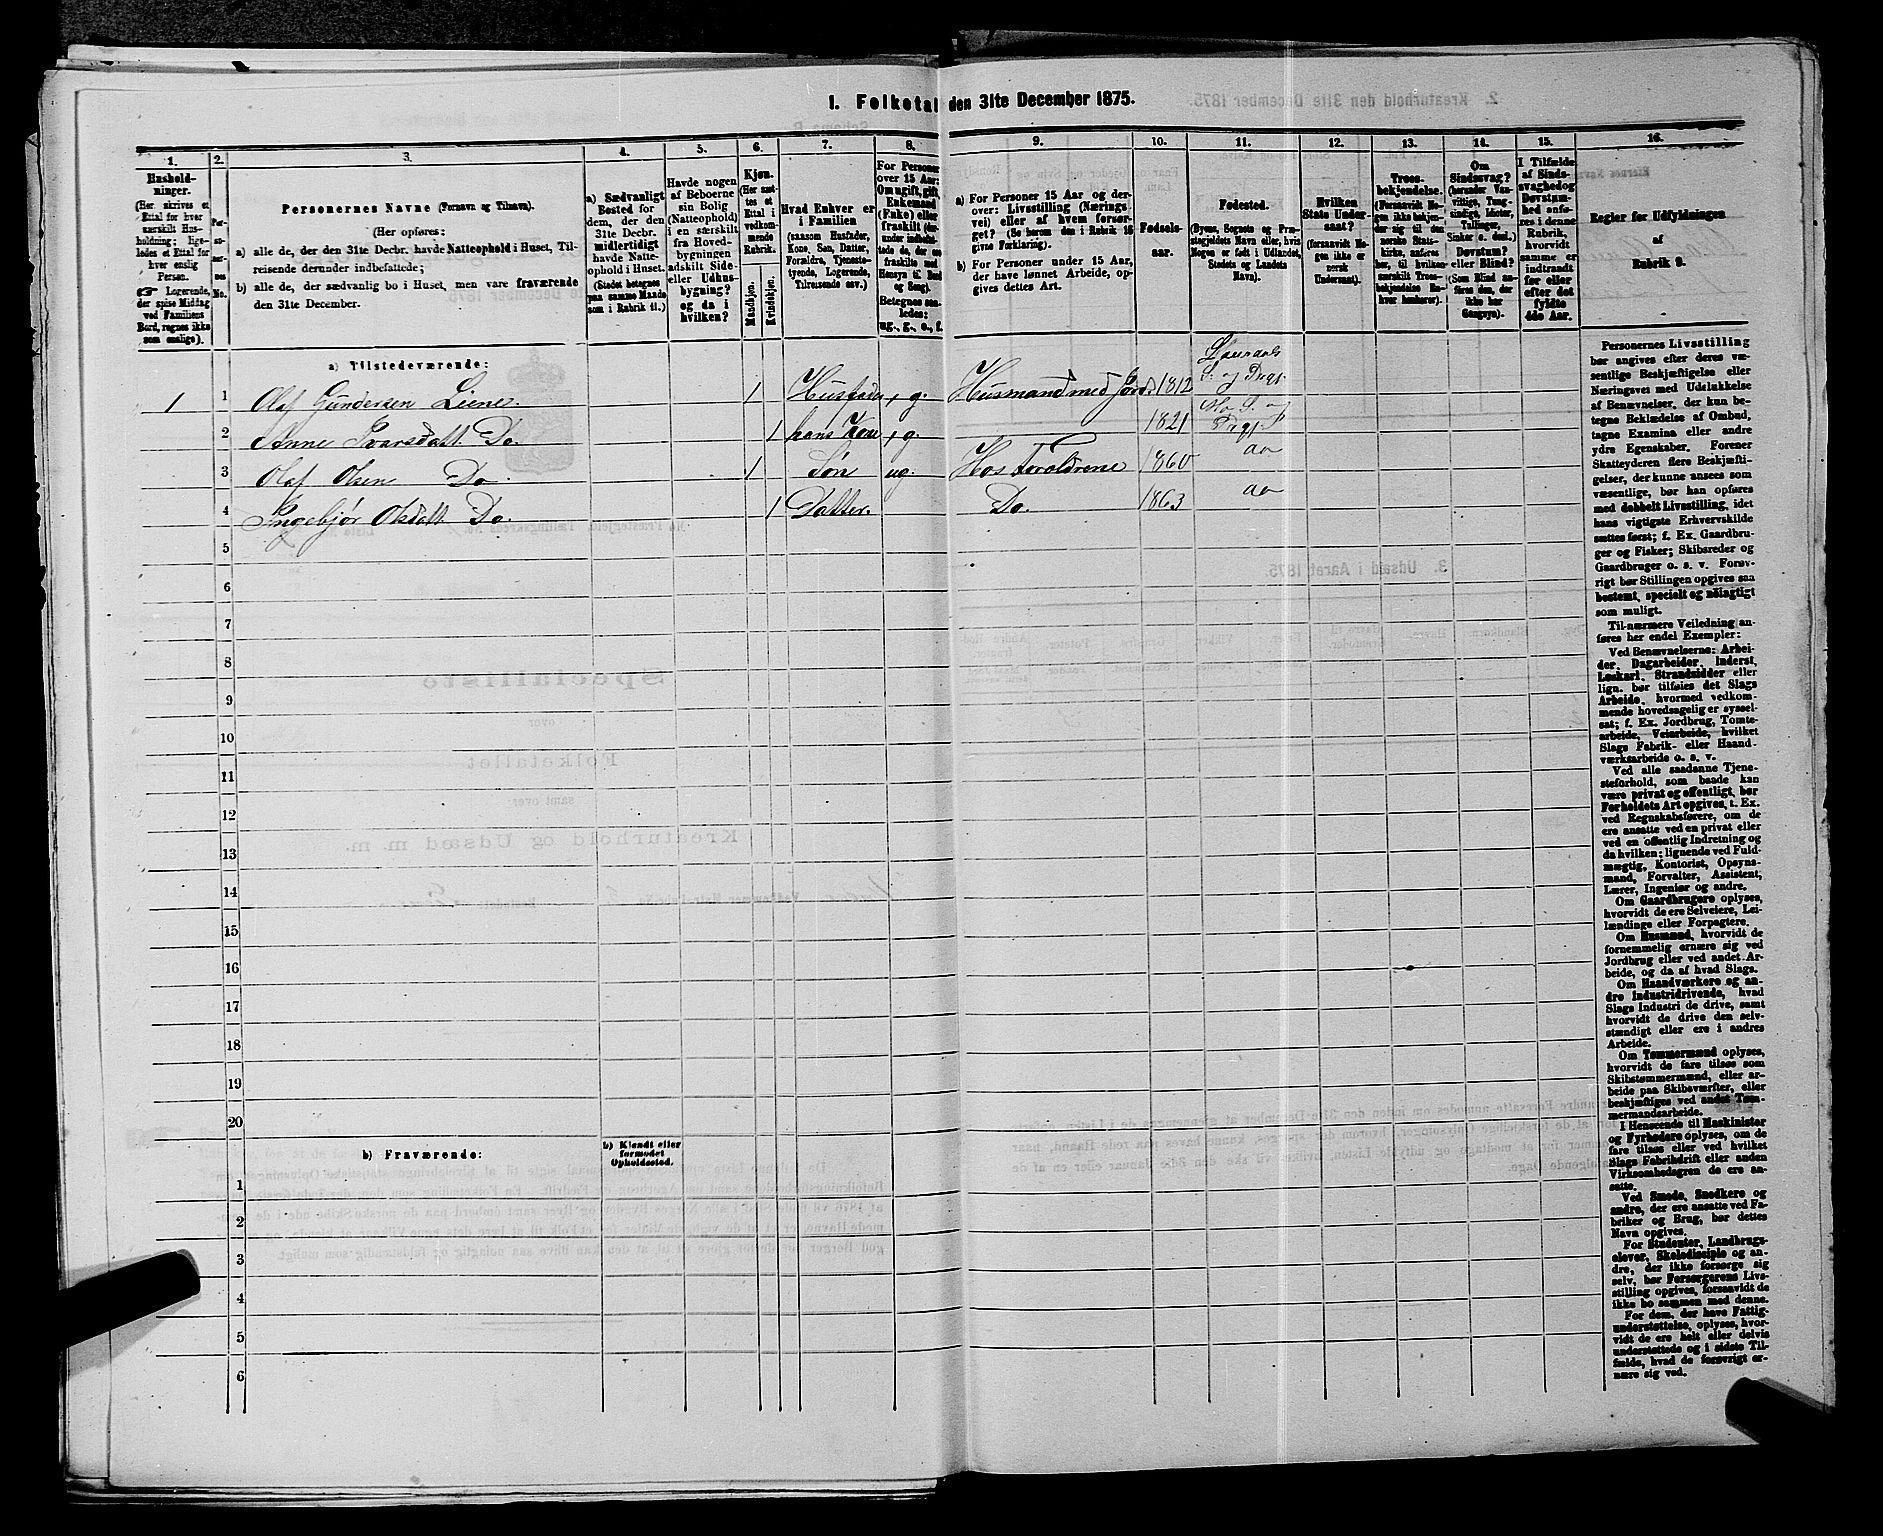 1. Folketal den 31te December 1875.
1. 2. 3. 4. 5. 6. 7. 8. 9. 10. 11. 12. 13. 14. 15. 16.
Hushold-
ninger.
(Her skrives et
Ettal for hver
særskilt Hus-
holdning; lige-
ledes et Ettal for
hver enslig
Person.
☞ Logerende,
der spise Middag
ved Familiens
Bord, regnes ikke
som enslige).
Per-
so-
ner-
nes
No.
Personernes Navne (Fornavn og Tilnavn).
(Her opføres:
a) alle de, der den 31te Decbr. havde Natteophold i Huset, Til-
reisende derunder indbefattede;
b) alle de, der sædvanlig bo i Huset, men vare fraværende
den 31te December.
a) Sædvanligt
Bosted for
dem, der den
31te Decbr.
midlertidigt
havde Natte-
ophold i Huset.
(Stedet betegnes
paa samme Maade
som i Rubrik 11.)
Havde nogen
af Beboerne
sin Bolig
(Natteophold)
i en særskilt
fra Hoved-
bygningen
adskilt Side-
eller Udhus-
bygning?
og da i
hvilken?
Kjøn.
(Her sæt-
tes et
Ettal i
vedkom-
mende
Rubrik.
Mandkjøn.
Kvindekjøn.
Hvad Enhver er
i Familien
(saasom Husfader,
Kone, Søn, Datter,
Forældre, Tjeneste-
tyende, Logerende,
Tilreisende osv.)
For Personer
over 15 Aar:
Om ugift, gift,
Enkemand
(Enke) eller
fraskilt (der-
under indbefat-
tede de, der ere
fraskilte med
Hensyn til Bord
og Seng).
Betegnes saa-
ledes:
ug., g., e., f.
a) For Personer 15 Aar og der-
over: Livsstilling (Nærings-
vei) eller af hvem forsør-
get? (Se herom den i Rubrik 16
givne Forklaring).
b) For Personer under 15 Aar,
der have lønnet Arbeide, op-
gives dettes Art.
Fødsels-
aar.
Fødested.
(Byens, Sognets og Præ-
stegjeldets Navn eller, hvis
Nogen er født i Udlandet,
Stedets og Landets
Navn).
Hvilken
Stats Under-
saat?
(forsaavidt No-
gen ikke er
norsk
Undersaat).
Troes-
bekjendelse.
(Forsaavidt No-
gen ikke bekjen-
der sig til den
norske Stats-
kirke, anføres
her, til hvilken
særskilt Troes-
bekjendelse En-
hver henhører).
Om
Sindssvag?
(herunder Van-
vittige, Tung-
sindige, Idioter,
Tullinger,
Sinker o. desl.)
Døvstum?
eller Blind?
(Som Blind an-
føres den, der
ikke har
Gangsyn).
I Tilfælde
af Sinds-
svaghed og
Døvstum-
hed anfø-
res i denne
Rubrik,
hvorvidt
samme er
indtraadt
før eller
efter det
fyldte
4de Aar.
Regler for Udfyldningen
af
Rubrik 9.
a) Tilstedeværende:
1 1 Olaf Gundersen Liene. 1 Husfader, g. Husmand med Jord. 1812 Lauraals S. og Prgt.
2 Anne Ivarsdatt. Do. 1 hans Kone, g. 1821 Mo S. og Prgt.
3 Olaf Olsen Do. 1 Søn ug. Hos Foroldrene 1860 do
4 Ingebjør Olsdatt. Do. 1 Datter. Do. 1863 do
5
6
7
8
9
10
11
12
13
14
15
16
17
18
19
20
b) Fraværende:
b) Kjendt eller
formodet
Opholdssted.
1
2
3
4
5
6
Personernes Livsstilling
bør angives efter deres væ-
sentlige Beskjæftigelse eller
Næringsvei med Udelukkelse
af Benævnelser, der kun be-
tegne Beklædelse af Ombud,
tagne Examina eller andre
ydre Egenskaber. Forener
Skatteyderen flere Beskjæfti-
gelser, der kunne ansees som
væsentlige, bør han opføres
med dobbelt Livsstilling, idet
hans vigtigste Erhvervskilde
sættes først; f. Ex. Gaardbru-
ger og Fisker; Skibsreder og
Gaardbruger o. s. v. Forøv-
rigt bør Stillingen opgives saa
bestemt, specielt og nøiagtigt
som muligt.
Til nærmere Veiledning an-
føres her endel Exempler:
Ved Benævnelserne: Arbei-
der, Dagarbeider, Inderst,
Løskarl, Strandsidder eller
lign. bør tilføies det Slags
Arbeide, hvormed vedkom-
mende hovedsagelig er syssel-
sat; f. Ex. Jordbrug, Tomte-
arbeide, Veiarbeide, hvilket
Slags Fabrik- eller Haand-
værksarbeide o. s. v.
Ved alle saadanne Tjene-
steforhold, som baade kan
være privat og offentligt, bør
Forholdets Art opgives, t. Ex.
ved Regnskabsførere, om de
ere ansatte ved en privat eller
ved en offentlig Indretning og
da hvilken; lignende ved Fuld-
mægtig, Kontorist, Opsyns-
mand, Forvalter, Assistent,
Lærer, Ingeniør og andre.
Om Gaardbrugere oplyses,
hvorvidt de ere Selveiere, Lei-
lændinge eller Forpagtere.
Om Husmænd, hvorvidt de
fornemmelig ernære sig ved
Jordbrug eller ved andet Ar-
beide, og da af hvad Slags.
Om Haandværkere og an-
dre Industridrivende, hvad
Slags Industri de drive, samt
hvorvidt de drive den selv-
stændigt eller ere i andres
Arbeide.
Om Tømmermænd oplyses,
hvorvidt de fare tilsøs som
Skibstømmermænd, eller ar-
beide paa Skibsværfter, eller
beskjæftiges ved andet Tøm-
mermandsarbeide.
I Henseende til Maskinister
og Fyrbødere oplyses, om de
fare tilsøs eller ved hvilket
Slags Fabrikdrift eller anden
Virksomhedsgren de ere an-
satte.
Ved Smede, Snedkere og
andre, der ere ansatte ved Fa-
briker og Brug, bør dettes
Navn opgives.
For Studenter, Landbrugs-
elever, Skoledisciple og an-
dre, der ikke forsørge sig
selv, bør Forsørgerens Livs-
stilling opgives, forsaavidt de
ikke bo sammen med denne.
For dem, der have Fattig-
understøttelse, oplyses, hvor-
vidt de ere helt eller delvis
understøttede og i sidste Til-
fælde, hvad de forøvrigt er-
nære sig ved.